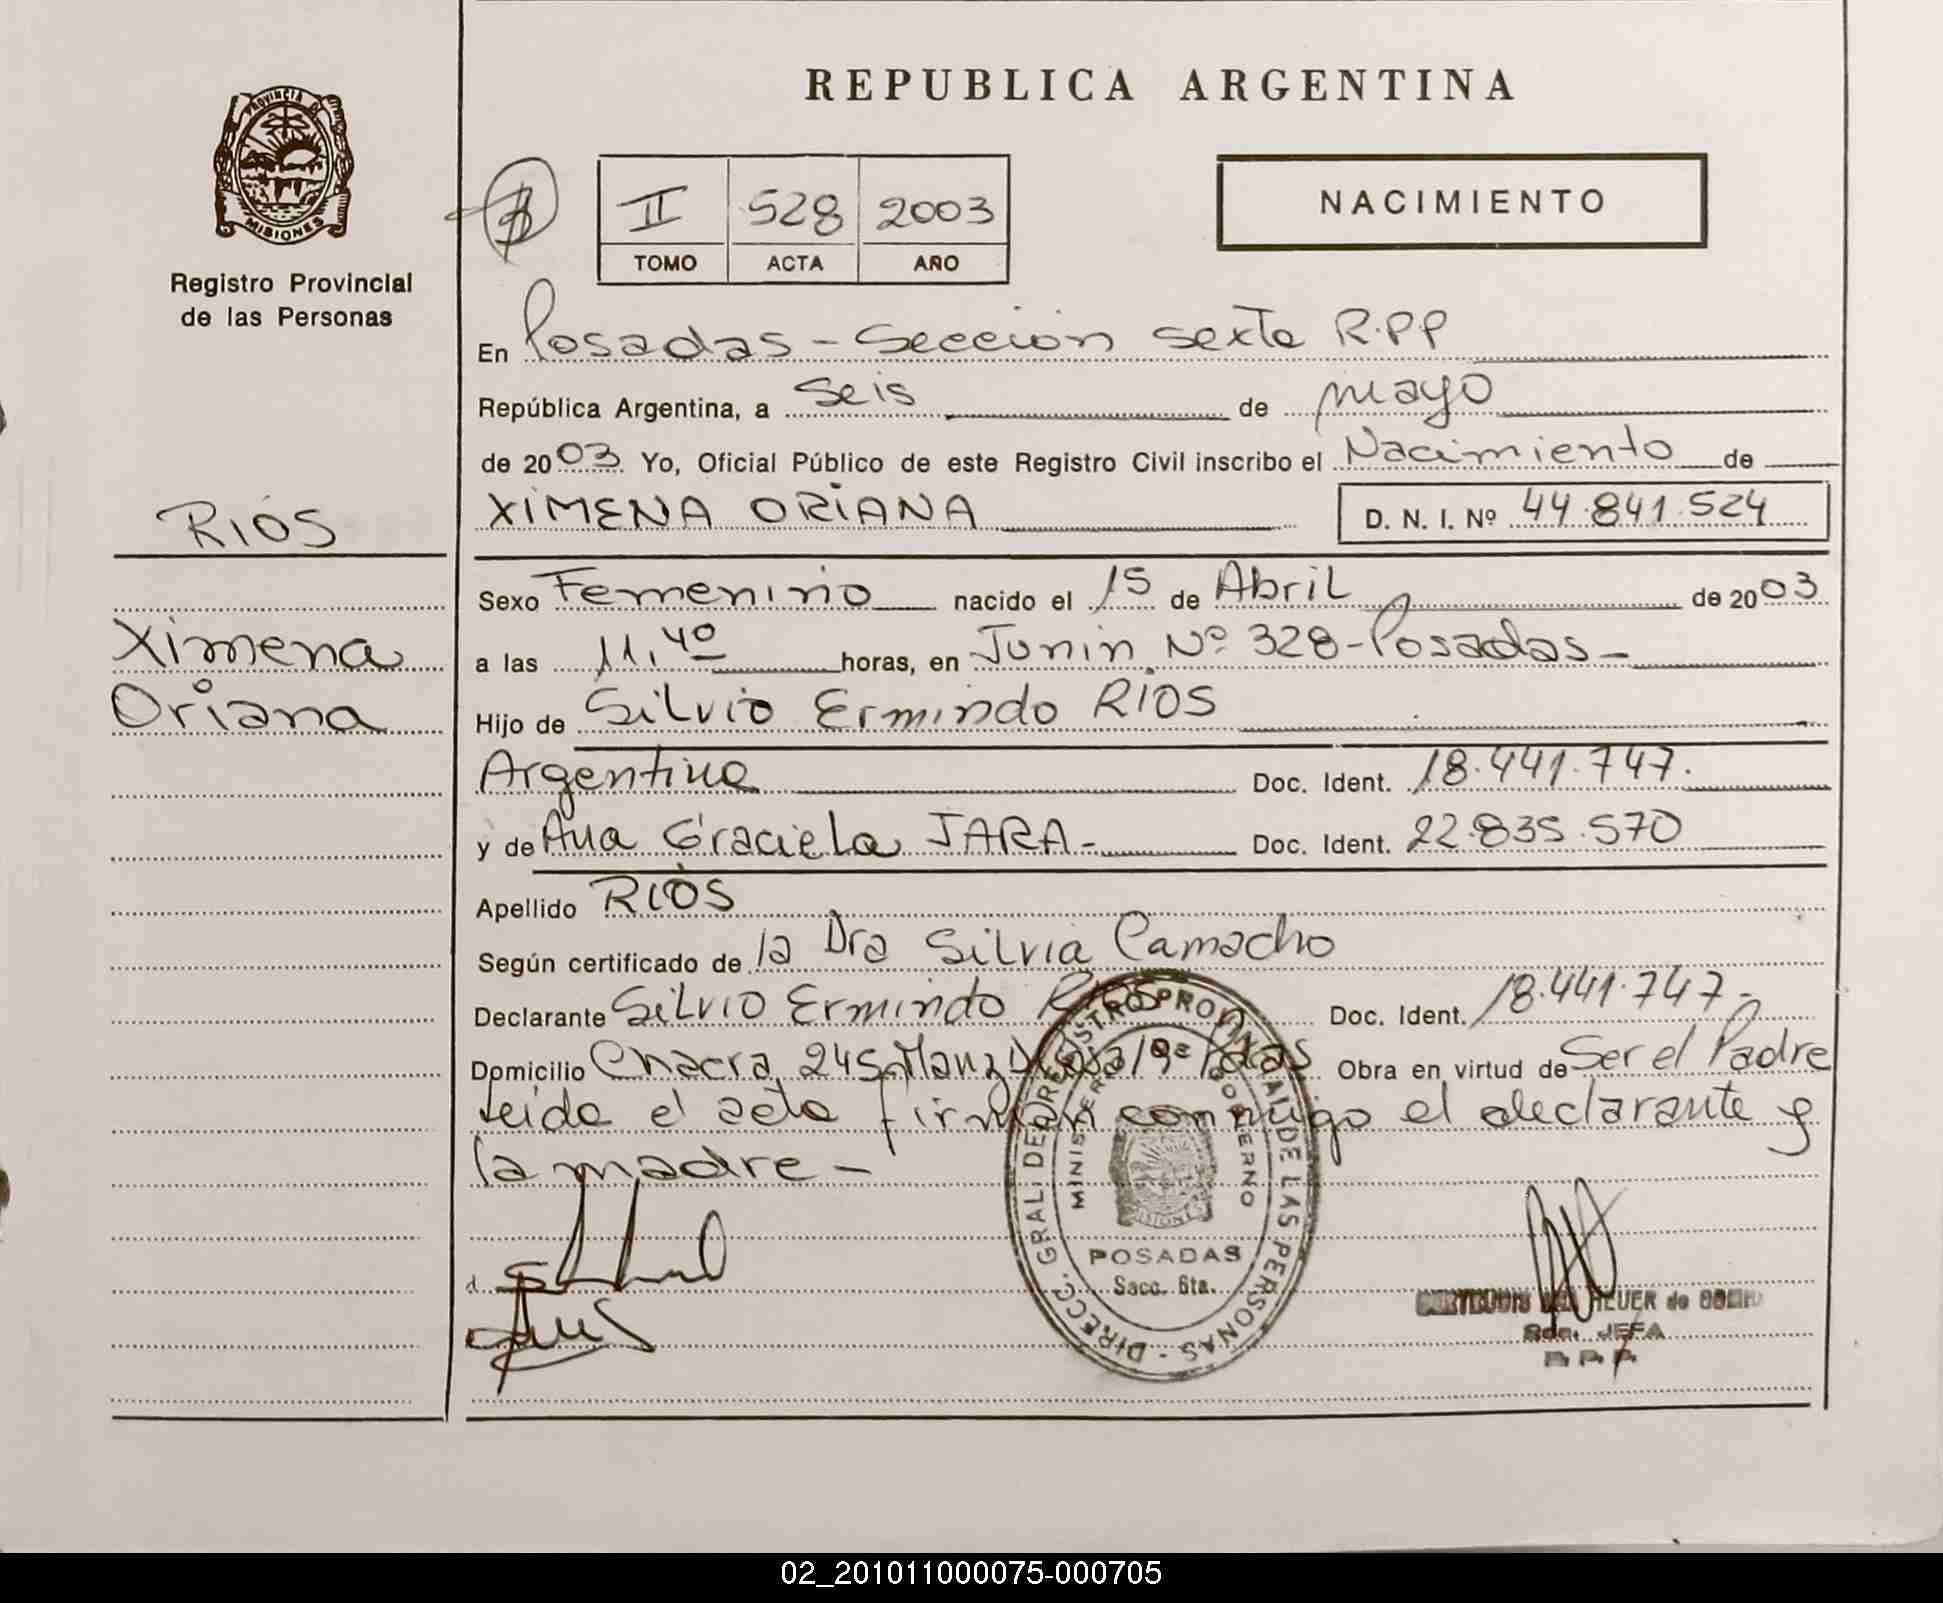 REPUBLICA ARGENTINA
PROVINCIA DE MISIONES
Registro Provincial
de las Personas
II 528 2003
TOMO ACTA AÑO
NACIMIENTO
En Posadas - Sección Sexta R.PP
República Argentina, a Seis de mayo
de 2003 Yo, Oficial Público de este Registro Civil inscribo el Nacimiento de
XIMENA ORIANA D. N. I. Nº 44.841.524
RIOS
Ximena
Oriana
Sexo Femenino nacido el 15 de Abril de 2003
a las 11,40 horas, en Junin Nº 328 - Posadas -
Hijo de Silvio Ermindo RIOS
Argentina Doc. Ident. 18.441.747.
y de Ana Graciela JARA - Doc. Ident. 22.835.570
Apellido RIOS
Según certificado de la Dra Silvia Camacho
Declarante Silvio Ermindo RIOS Doc. Ident. 18.441.747 -
Domicilio Chacra 245 Manz Obra en virtud de Ser el Padre
Leida el acta firman conmigo el declarante y
la madre -
DIRECC. GRAL. DE REGISTRO PROVINCIAL DE LAS PERSONAS
MINISTERIO GOBIERNO
MISIONES
POSADAS
Secc. 6ta.
de
JEFA
02_201011000075-000705